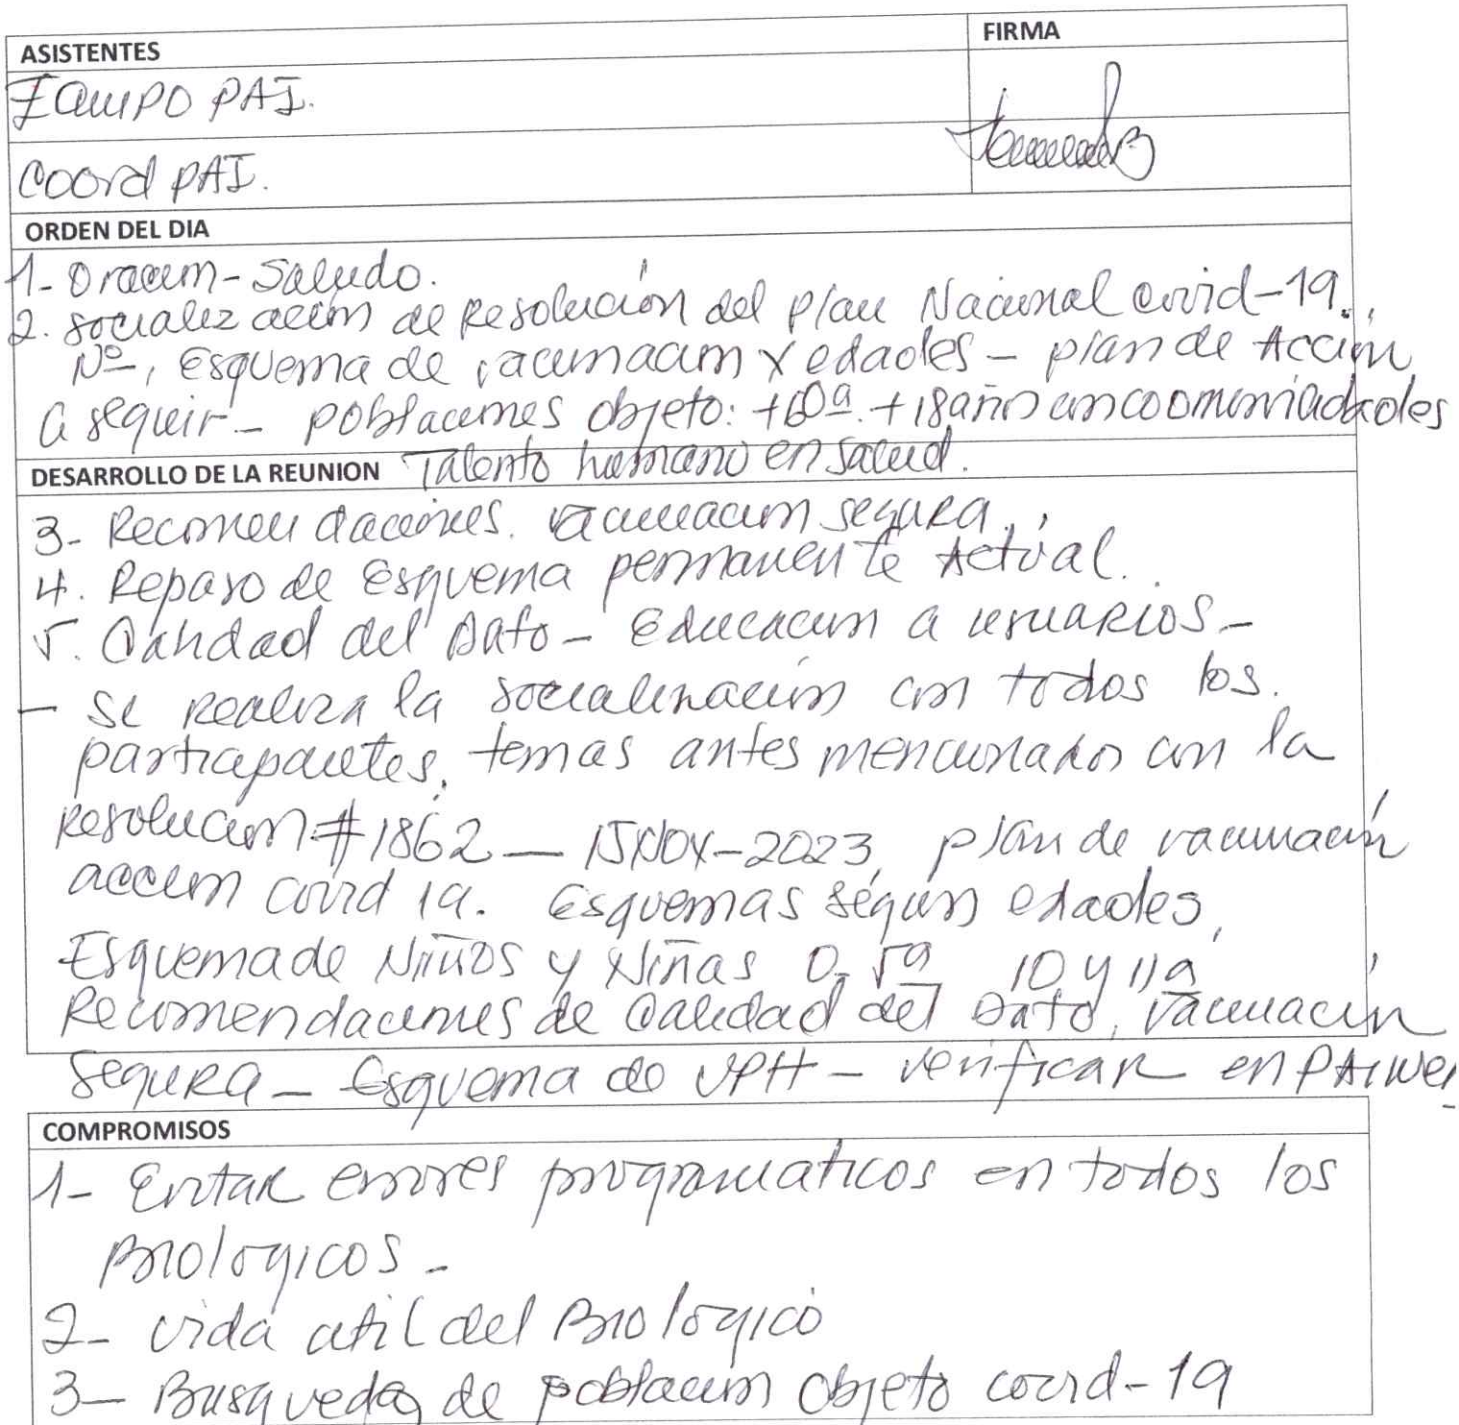 ASISTENTES FIRMA
Equipo PAI.
Coord PAI.
ORDEN DEL DIA
1- Oracion - Saludo.
2. socializacion de Resolución del plan Nacional covid-19.,
Nº, Esquema de vacunacion x edades - plan de Accion
a seguir - poblaciones objeto: +60ª + 18 años con comorbilidades
DESARROLLO DE LA REUNION Talento humano en salud.
3- Recomendaciones. vacunacion segura.
4. Repaso de Esquema permanente Actual.
5. Calidad del Dato - Educacion a usuarios -
- Se realiza la socializacion con todos los.
participantes, temas antes mencionados con la
Resolucion #1862 - 15 Nov - 2023, plan de vacunacion
accion covid 19. Esquemas según edades,
Esquema de Niños y Niñas 0-5ª 10 y 11ª
Recomendaciones de Calidad del Dato, vacunacion
segura - Esquema de VPH - verificar en PAIWeb
COMPROMISOS
1- Evitar errores programaticos en todos los
Biologicos -
2- vida util del Biologico
3- Busqueda de poblacion objeto covid-19